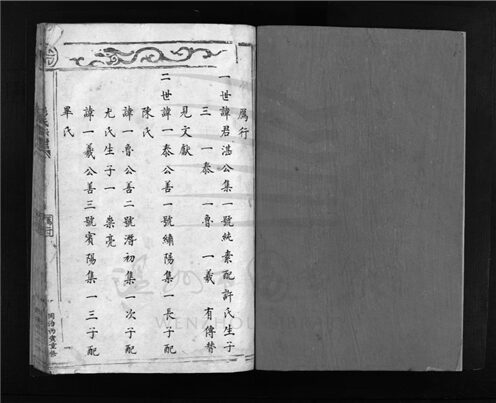 鴈行
一世諱君湛公集一號純素配許氏生子
三 一泰 一魯 一義 有傳替
見文獻
二世諱一泰公善一號繡陽集一長子配
陳氏
諱一魯公善二號潛初集一次子配
尤氏生子一 樂亮
諱一義公善三號賓陽集一三子配
畢氏
同治丙寅重修